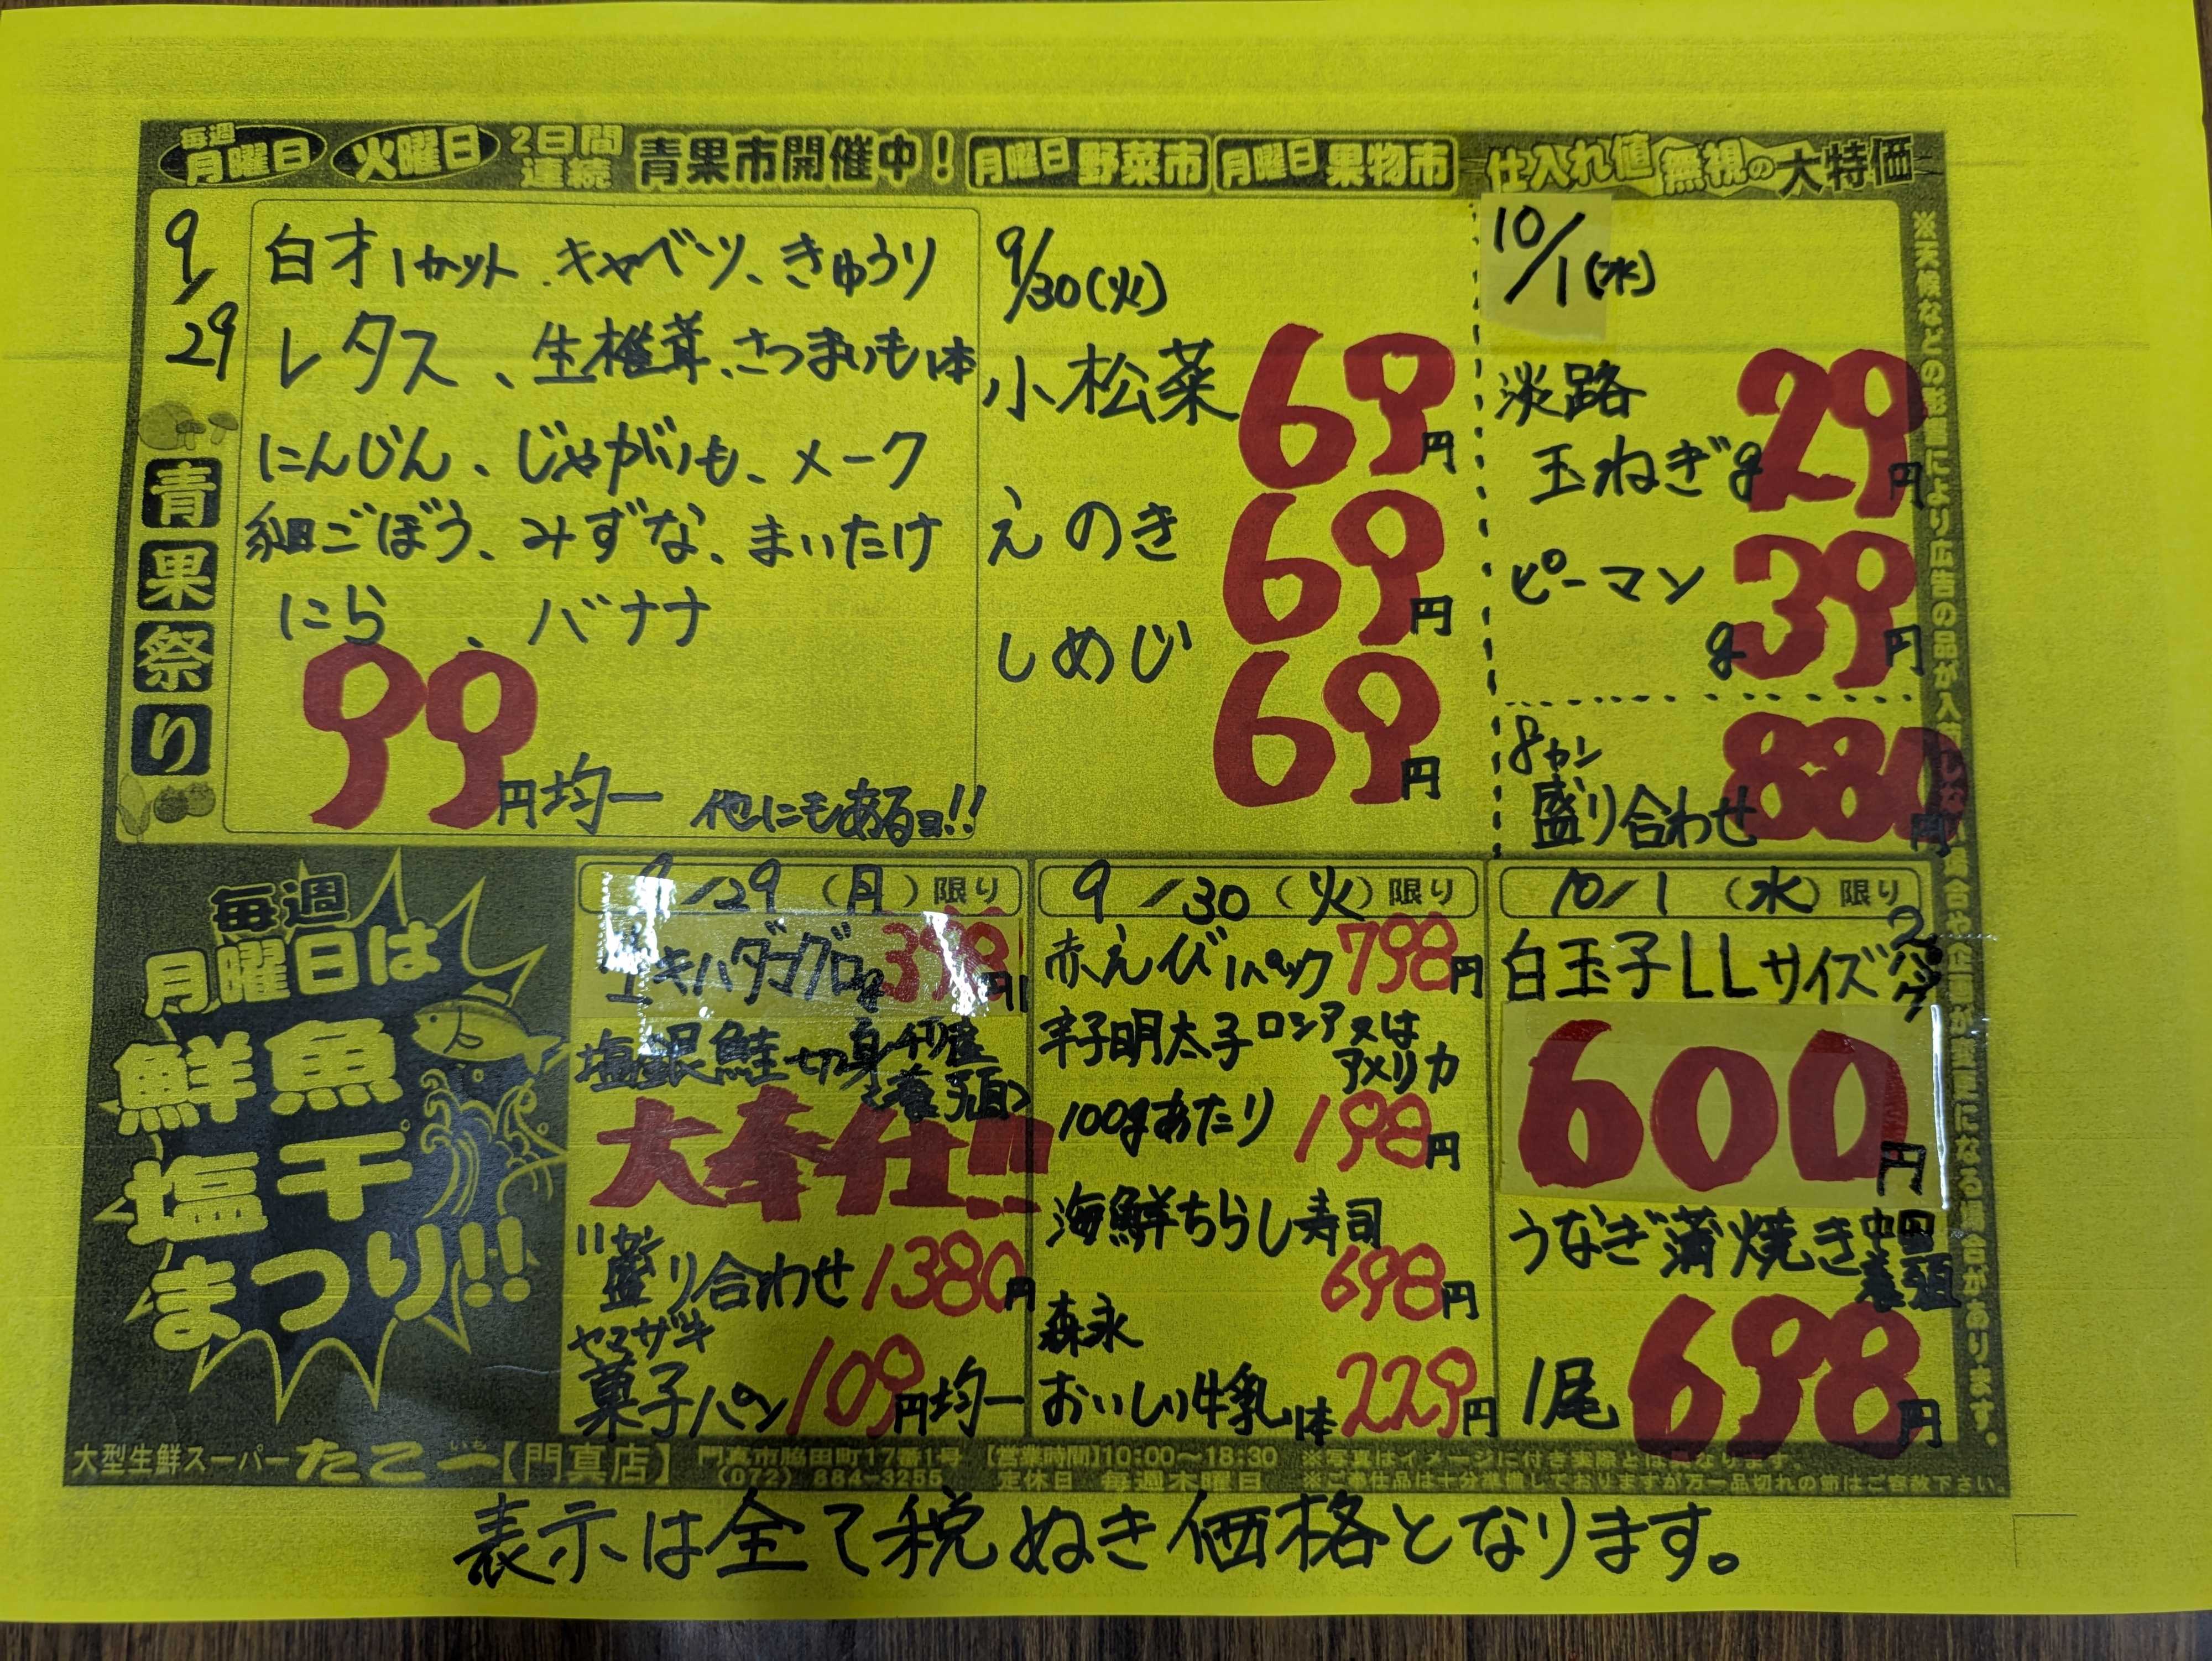 毎週 月曜日 火曜日 2日間連続 青果市開催中! 月曜日 野菜市 月曜日 果物市 仕入れ値無視の大特価
9/29
青果祭り
白才1カット、キャベツ、きゅうり
レタス、生椎茸、さつまいも1本
にんじん、じゃがいも、メーク
細ごぼう、みずな、まいたけ
にら、バナナ
99円均一 他にもあるヨ!!
9/30(火)
小松菜 69円
えのき 69円
しめじ 69円
10/1(水)
淡路
玉ねぎ 29円
ピーマン
39円
8カン
盛り合わせ 880円
毎週
月曜日は
鮮魚
塩干
まつり!!
9/29(月)限り
生キハダマグロ 398円
塩銀鮭切身 チリ産
〈養殖〉
大奉仕!!
11カン
盛り合わせ 1380円
ヤマザキ
菓子パン 109円均一
9/30(火)限り
赤えび1パック 798円
辛子明太子 ロシア又は
アメリカ
100gあたり 198円
海鮮ちらし寿司
698円
森永
おいしい牛乳1本 229円
10/1(水)限り
白玉子LLサイズ 2パック
600円
うなぎ蒲焼き 中国
養殖
1尾 698円
大型生鮮スーパー たこ一 いち 【門真店】 門真市脇田町17番1号 【営業時間】10:00〜18:30 ※写真はイメージに付き実際とは異なります。
(072) 884-3255 定休日 毎週木曜日 ※ご奉仕品は十分準備しておりますが万一品切れの節はご容赦下さい。
表示は全て税ぬき価格となります。